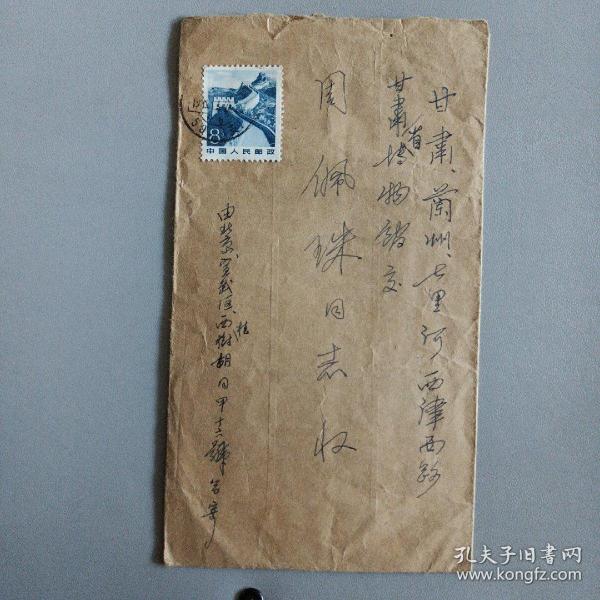 甘肃、兰州、七里河西津西路
甘肃省博物馆交
周佩珠同志收
由北京、宣武区、西
桂
树胡同甲十六號
寄
8
中国人民邮政
孔夫子旧书网
www.kongfz.com